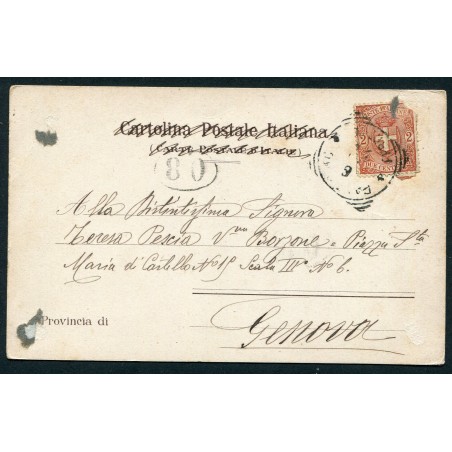 Cartolina Postale Italiana
(CARTE POSTALE D'ITALIE)
80
2 2
DUE CENT
Alla Distintissima Signora
Teresa Pescia Vᵛᵃ Borzone Piazza Sta
Maria di Castello Nº 15 Scala IIIª Nº 6.
Provincia di
Genova